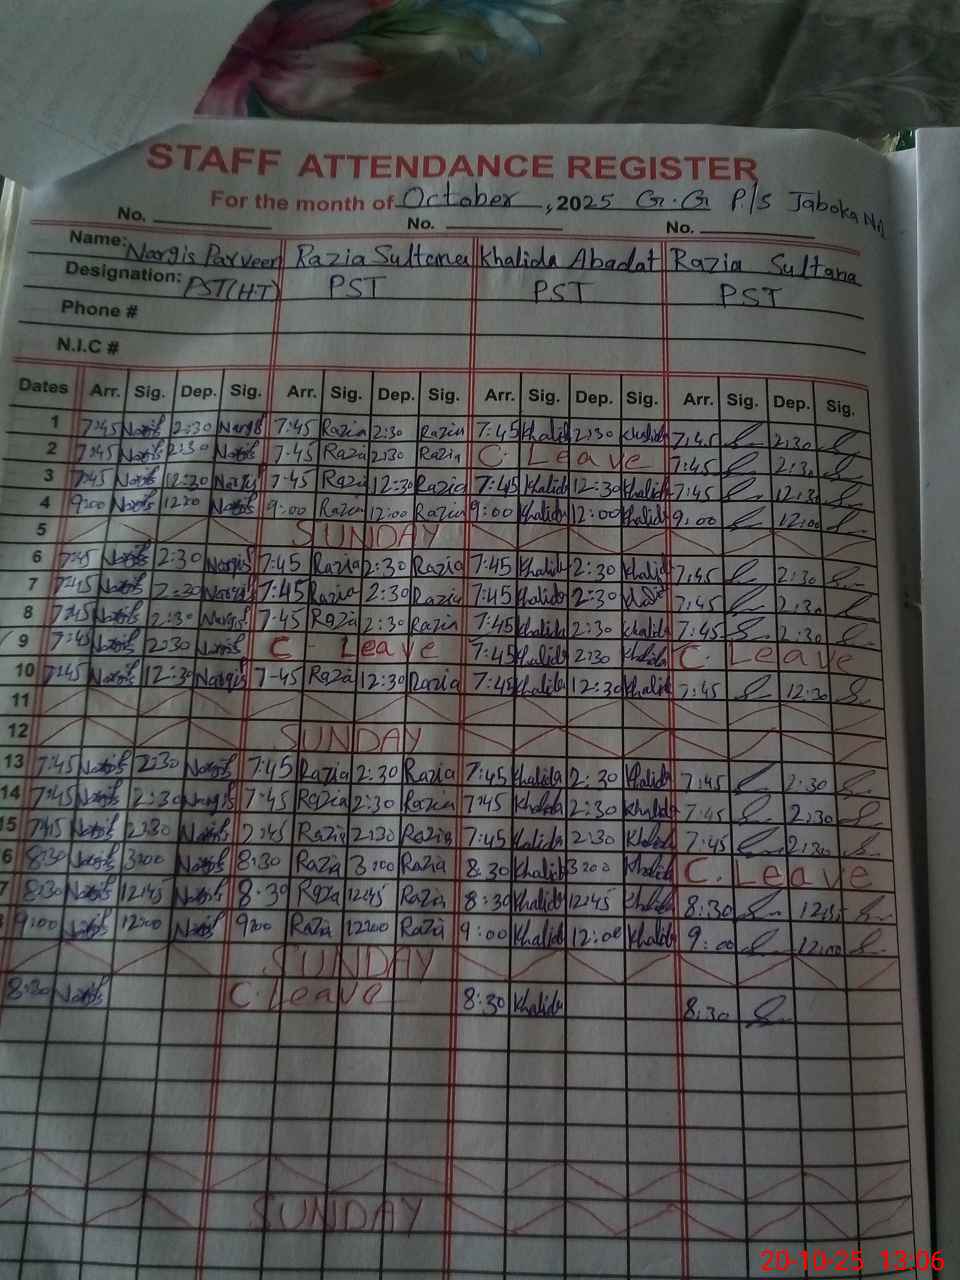 STAFF ATTENDANCE REGISTER
For the month of October, 2025 G.G P/S Jaboka No
No. No. No.
Name: Nargis Parveen Razia Sultana Khalida Abadat Razia Sultana
Designation: PST(H.T) PST PST PST
Phone #
N.I.C #
Dates Arr. Sig. Dep. Sig. Arr. Sig. Dep. Sig. Arr. Sig. Dep. Sig. Arr. Sig. Dep. Sig.
1 7:45 Nargis 2:30 Nargis 7:45 Razia 2:30 Razia 7:45 Khalida 2:30 Khalida 7:45 2:30
2 7:45 Nargis 2:30 Nargis 7-45 Razia 2:30 Razia C. Leave 7:45 2:30
3 7:45 Nargis 12:30 Nargis 7-45 Razia 12:30 Razia 7:45 Khalida 12:30 Khalida 7:45 12:30
4 9:00 Nargis 12:00 Nargis 9:00 Razia 12:00 Razia 9:00 Khalida 12:00 Khalida 9:00 12:00
5 SUNDAY
6 7:45 Nargis 2:30 Nargis 7:45 Razia 2:30 Razia 7:45 Khalida 2:30 Khalida 7:45 2:30
7 7:45 Nargis 2:30 Nargis 7:45 Razia 2:30 Razia 7:45 Khalida 2:30 Khalida 7:45 2:30
8 7:45 Nargis 2:30 Nargis 7-45 Razia 2:30 Razia 7:45 Khalida 2:30 Khalida 7:45 2:30
9 7:45 Nargis 2:30 Nargis C - Leave 7:45 Khalida 2:30 Khalida C. Leave
10 7:45 Nargis 12:30 Nargis 7-45 Razia 12:30 Razia 7:45 Khalida 12:30 Khalida 7:45 12:30
11
12 SUNDAY
13 7:45 Nargis 2:30 Nargis 7:45 Razia 2:30 Razia 7:45 Khalida 2:30 Khalida 7:45 2:30
14 7:45 Nargis 2:30 Nargis 7:45 Razia 2:30 Razia 7:45 Khalida 2:30 Khalida 7:45 2:30
15 7:45 Nargis 2:30 Nargis 7:45 Razia 2:30 Razia 7:45 Khalida 2:30 Khalida 7:45 2:30
6 8:30 Nargis 3:00 Nargis 8:30 Razia 3:00 Razia 8:30 Khalida 3:00 Khalida C. Leave
7 8:30 Nargis 12:45 Nargis 8:30 Razia 12:45 Razia 8:30 Khalida 12:45 Khalida 8:30 12:45
9:00 Nargis 12:00 Nargis 9:00 Razia 12:00 Razia 9:00 Khalida 12:00 Khalida 9:00 12:00
SUNDAY
8:30 Nargis C. Leave 8:30 Khalida 8:30
SUNDAY
20-10-25 13:06